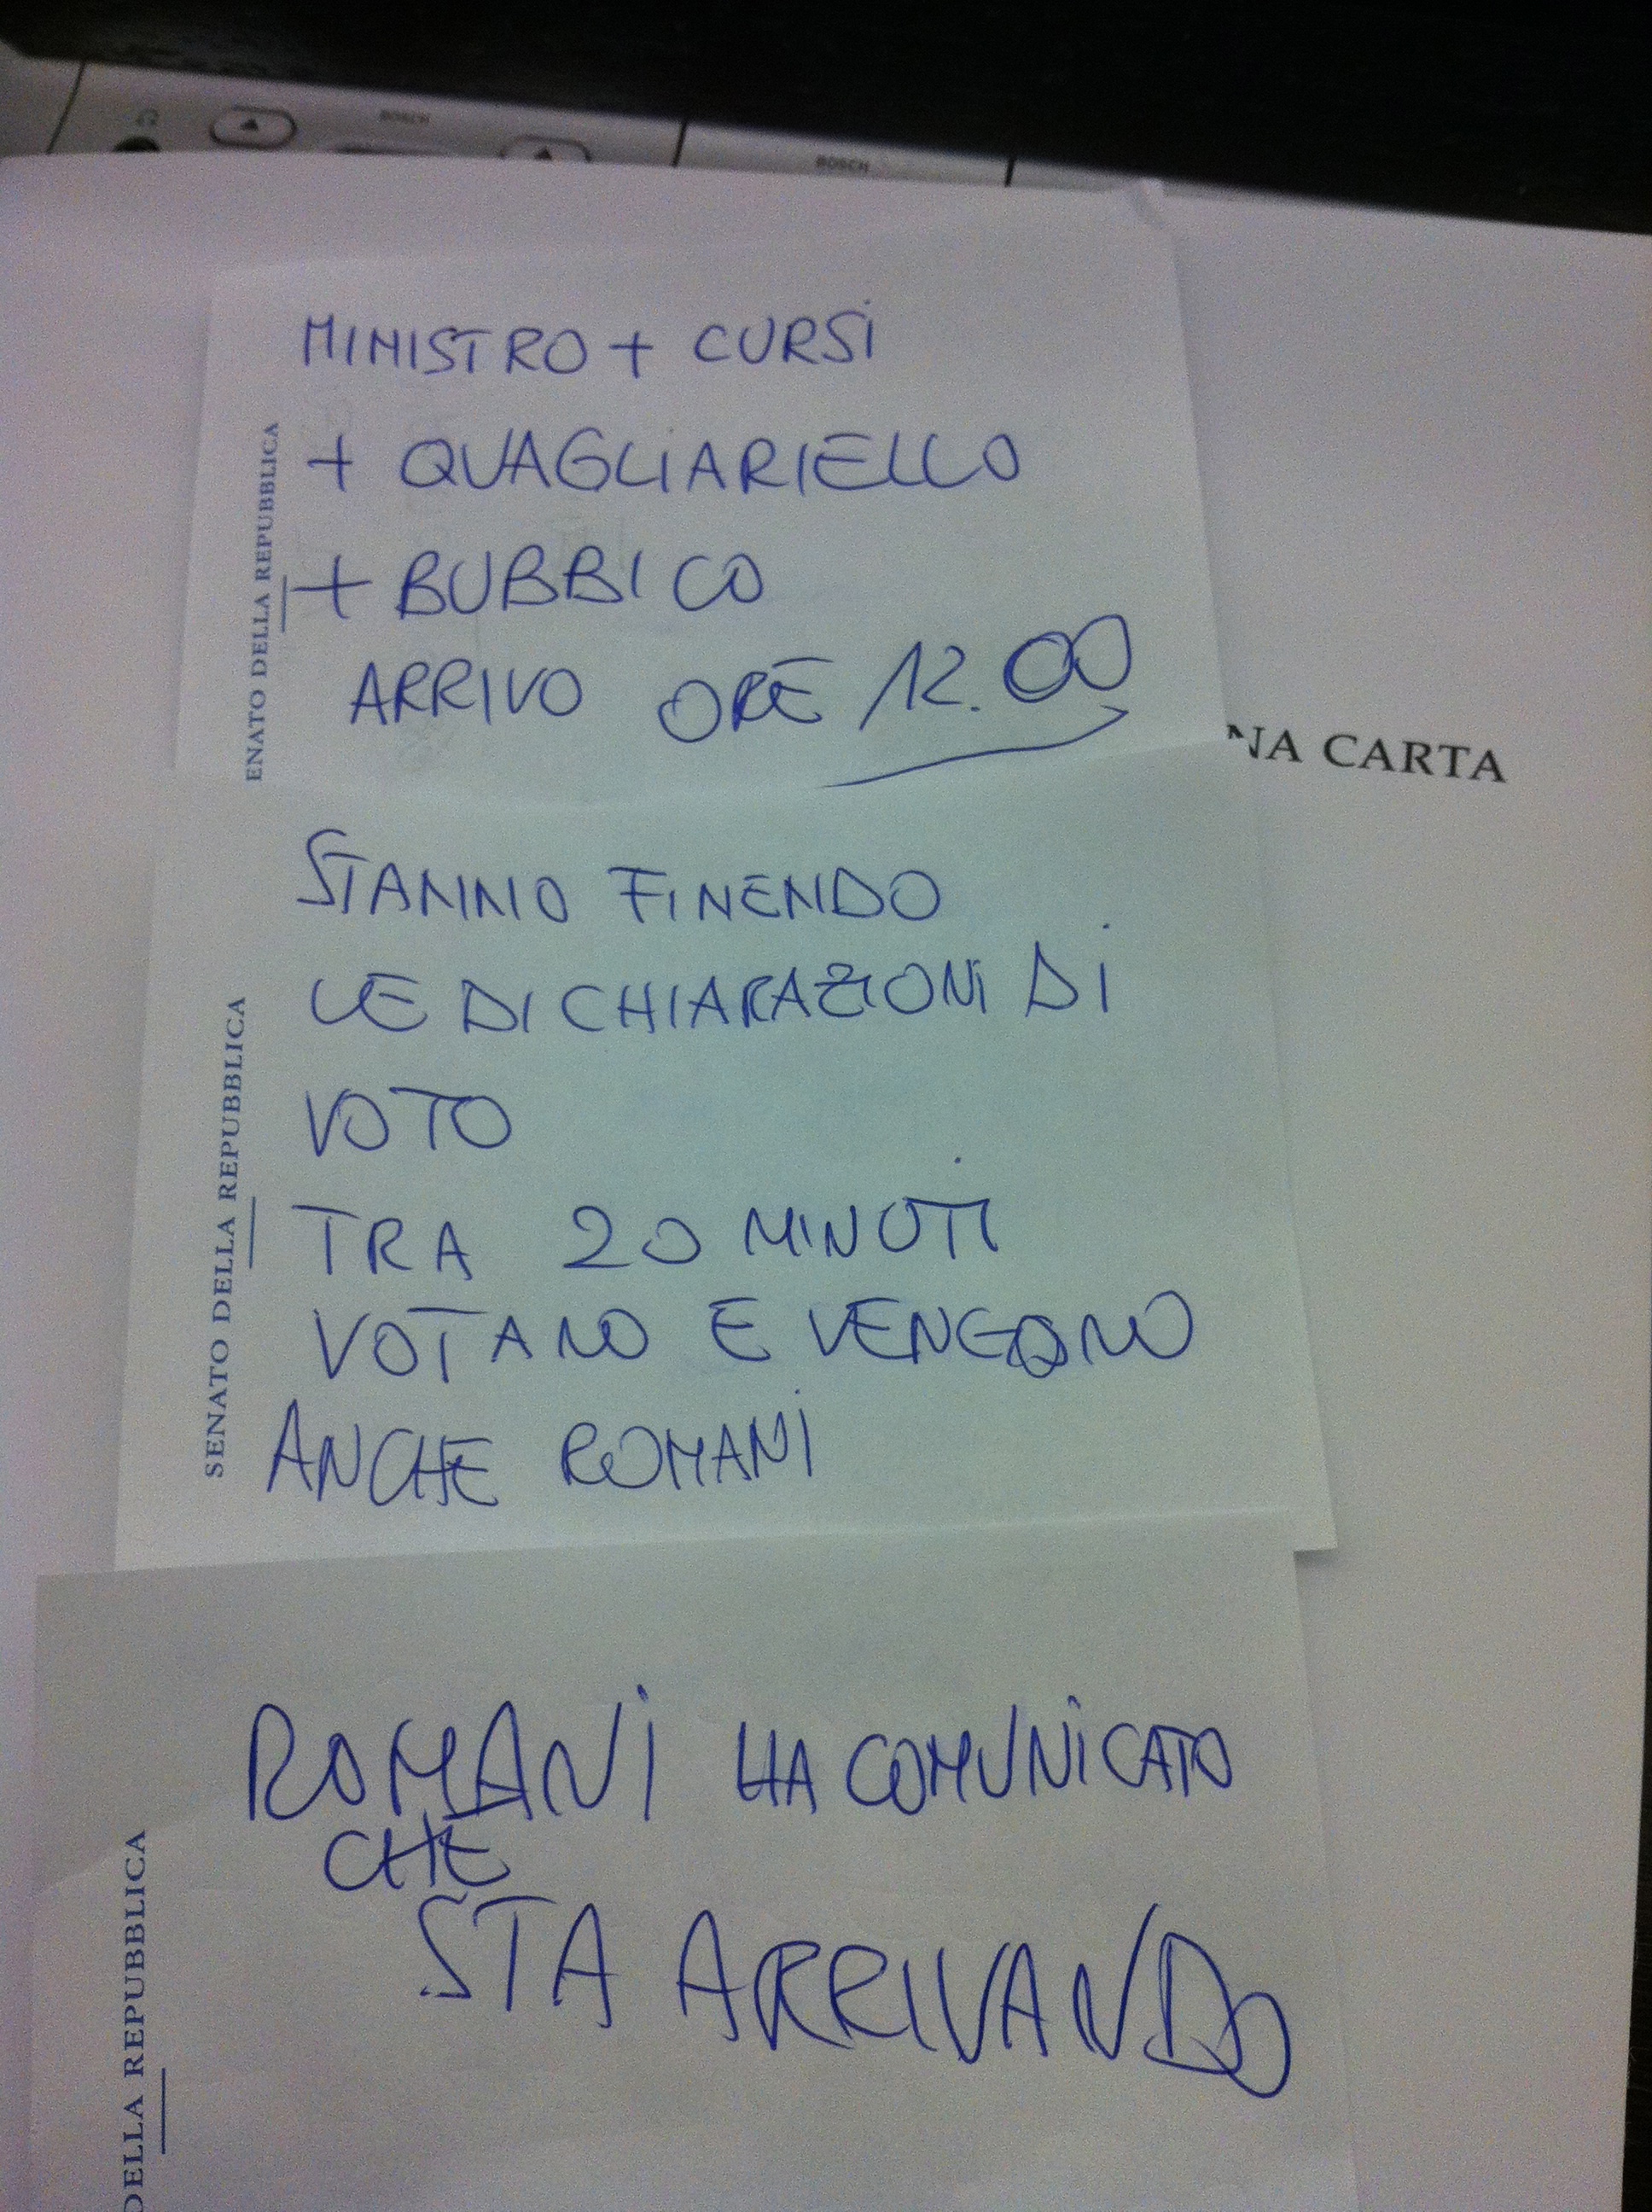 BOSCH
BOSCH
MINISTRO + CURSI
+ QUAGLIARIELLO
+ BUBBICO
ARRIVO ORE 12.00
ENATO DELLA REPUBBLICA
NA CARTA
STANNO FINENDO
LE DICHIARAZIONI DI
VOTO
TRA 20 MINUTI
VOTANO E VENGONO
ANCHE ROMANI
SENATO DELLA REPUBBLICA
ROMANI HA COMUNICATO
CHE
STA ARRIVANDO
DELLA REPUBBLICA